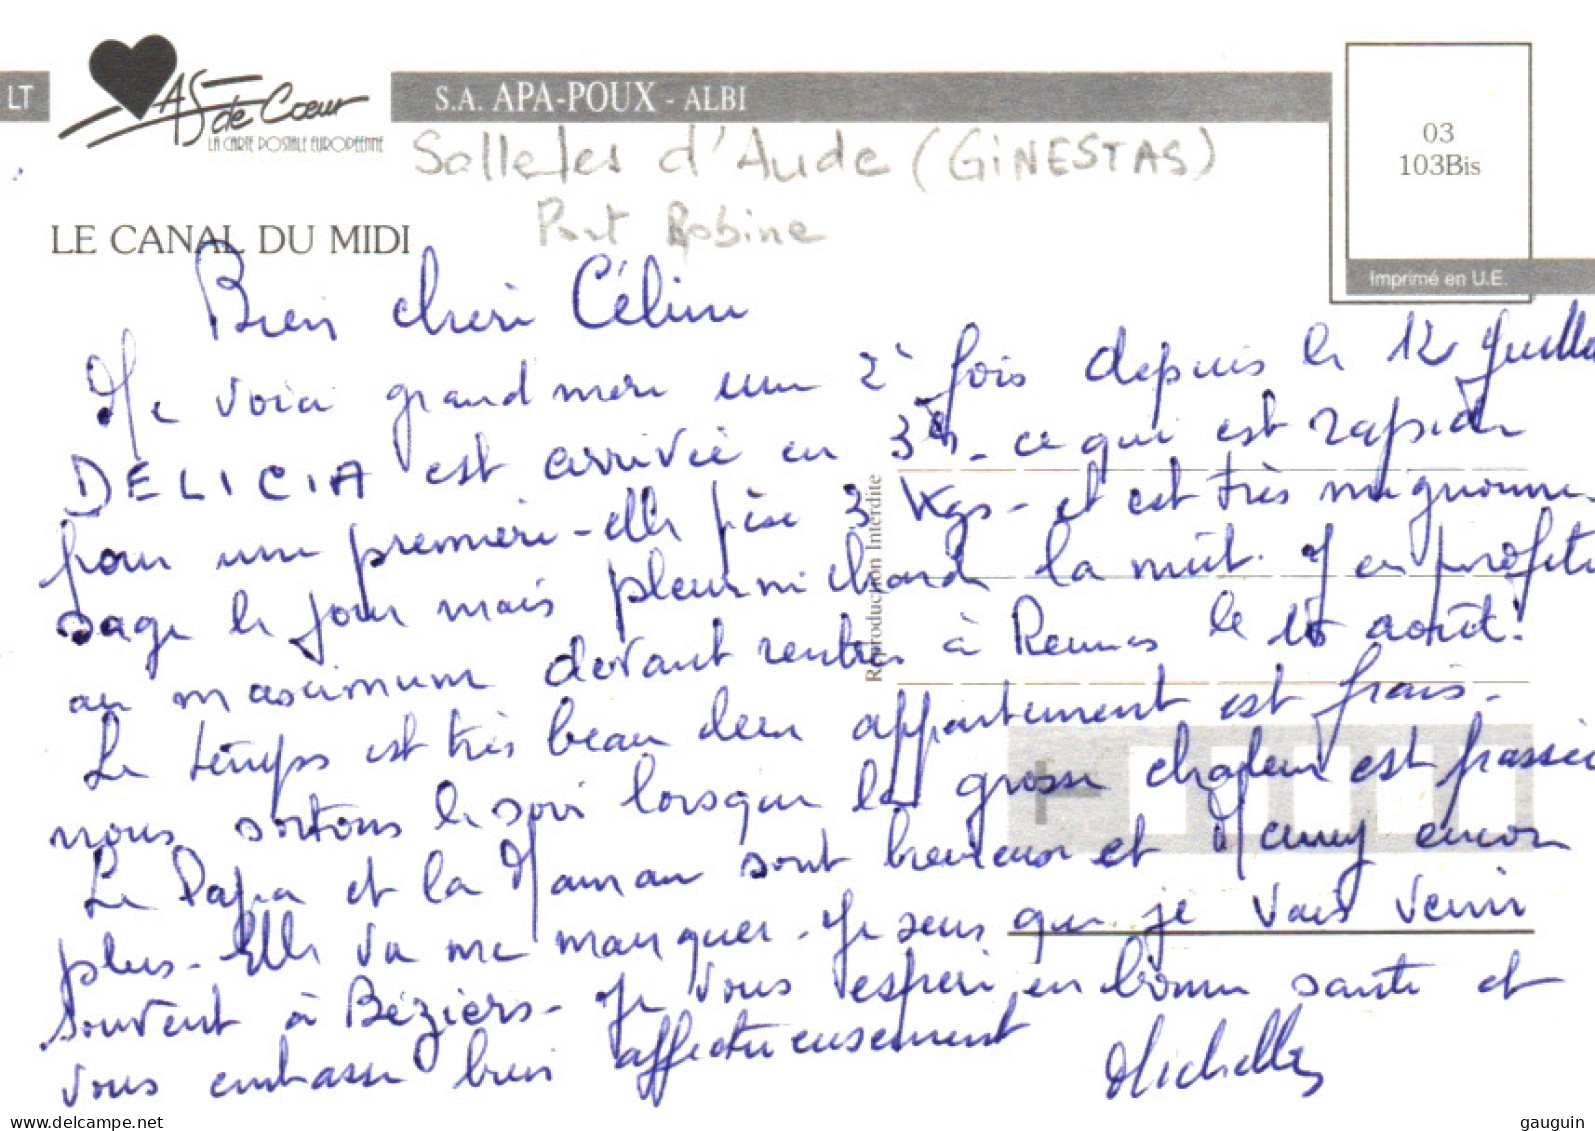 LT
AS de Cœur
LA CARTE POSTALE EUROPÉENNE
S.A. APA-POUX - ALBI
Salleles d'Aude (GINESTAS)
Port Robine
03
103Bis
Imprimé en U.E.
LE CANAL DU MIDI
Reproduction Interdite
Bien chère Céline
Me voici grand mère une 2è fois depuis le 12 Juillet
DELICIA est arrivée en 3h - ce qui est rapide
pour une première - elle pèse 3 kgs - et est très mignonne
sage le jour mais pleurnicharde la nuit. J'en profite
au maximum devant rentrer à Rennes le 15 août.
Le temps est très beau leur appartement est frais -
nous sortons le soir lorsque la grosse chaleur est passée
Le Papa et la Maman sont heureux et Mamy encore
plus - Elle va me manquer - Je sens que je vais venir
souvent à Béziers - Je vous espère en bonne santé et
vous embrasse bien affectueusement
Michelle
www.delcampe.net
gauguin